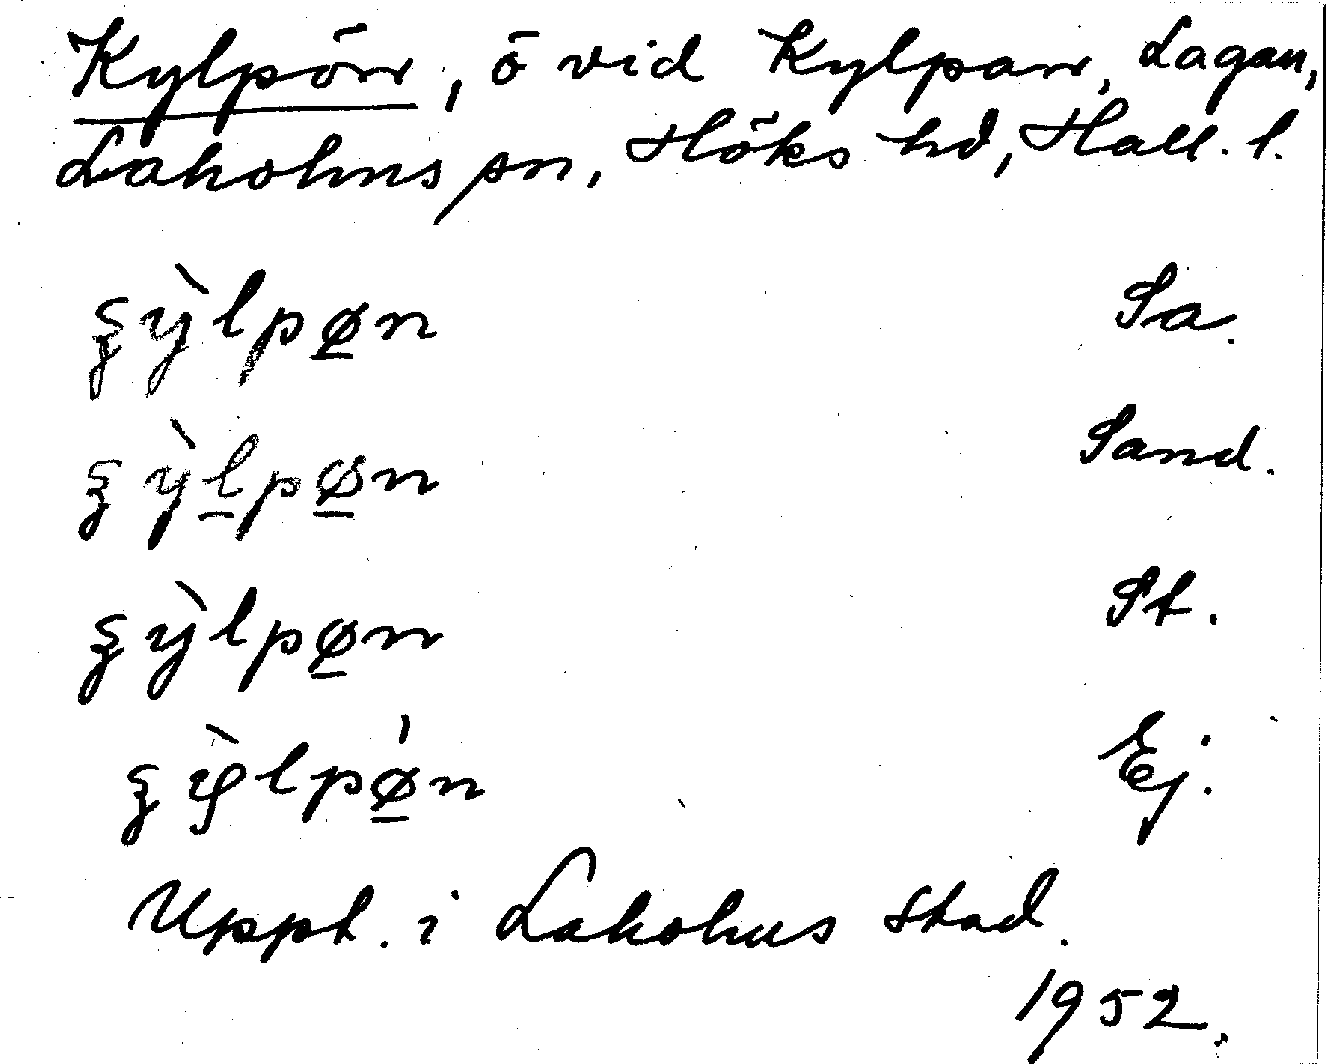 Kylpön, ö vid Kylpan, Lagan,
Laholms sn, Höks hd, Hall. l.
ȿỳlpø̲n Sa.
ȿỳl̲pø̲n Sand.
ȿỳlpø̲n St.
ȿỳlpǿ̲n Ej.
Uppt. i Laholms stad.
1952.